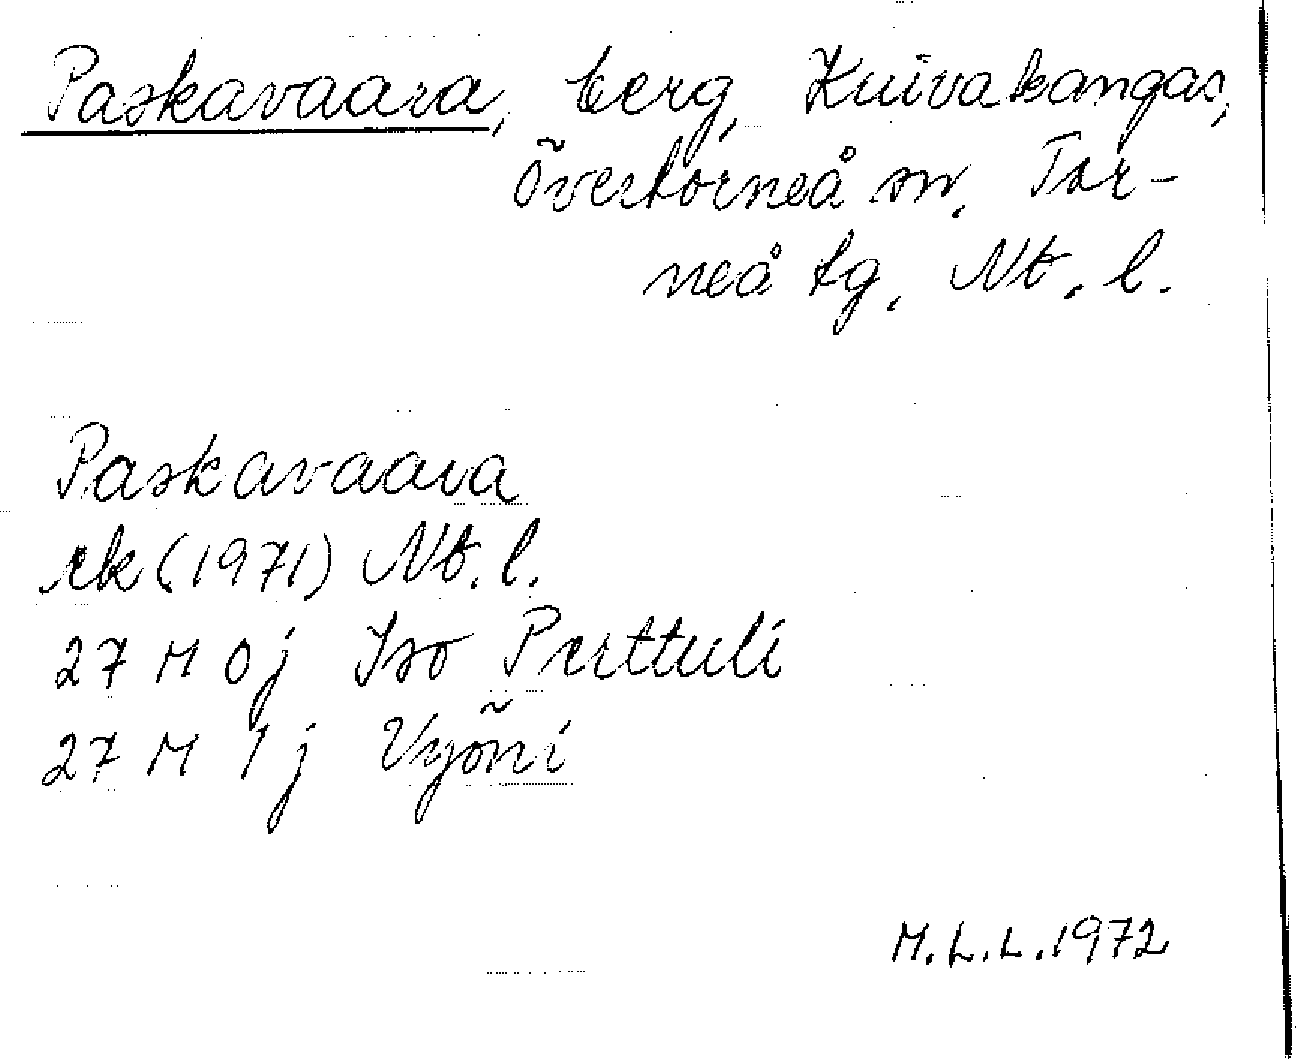 Paskavaara, berg, Kuivakangas,
Övertorneå sn, Tor-
neå tg, Nb. l.
Paskavaara
rk (1971) Nb. l.
27 M 0j Iso Perttuli
27 M 1j Vyöni
M.L.L. 1972